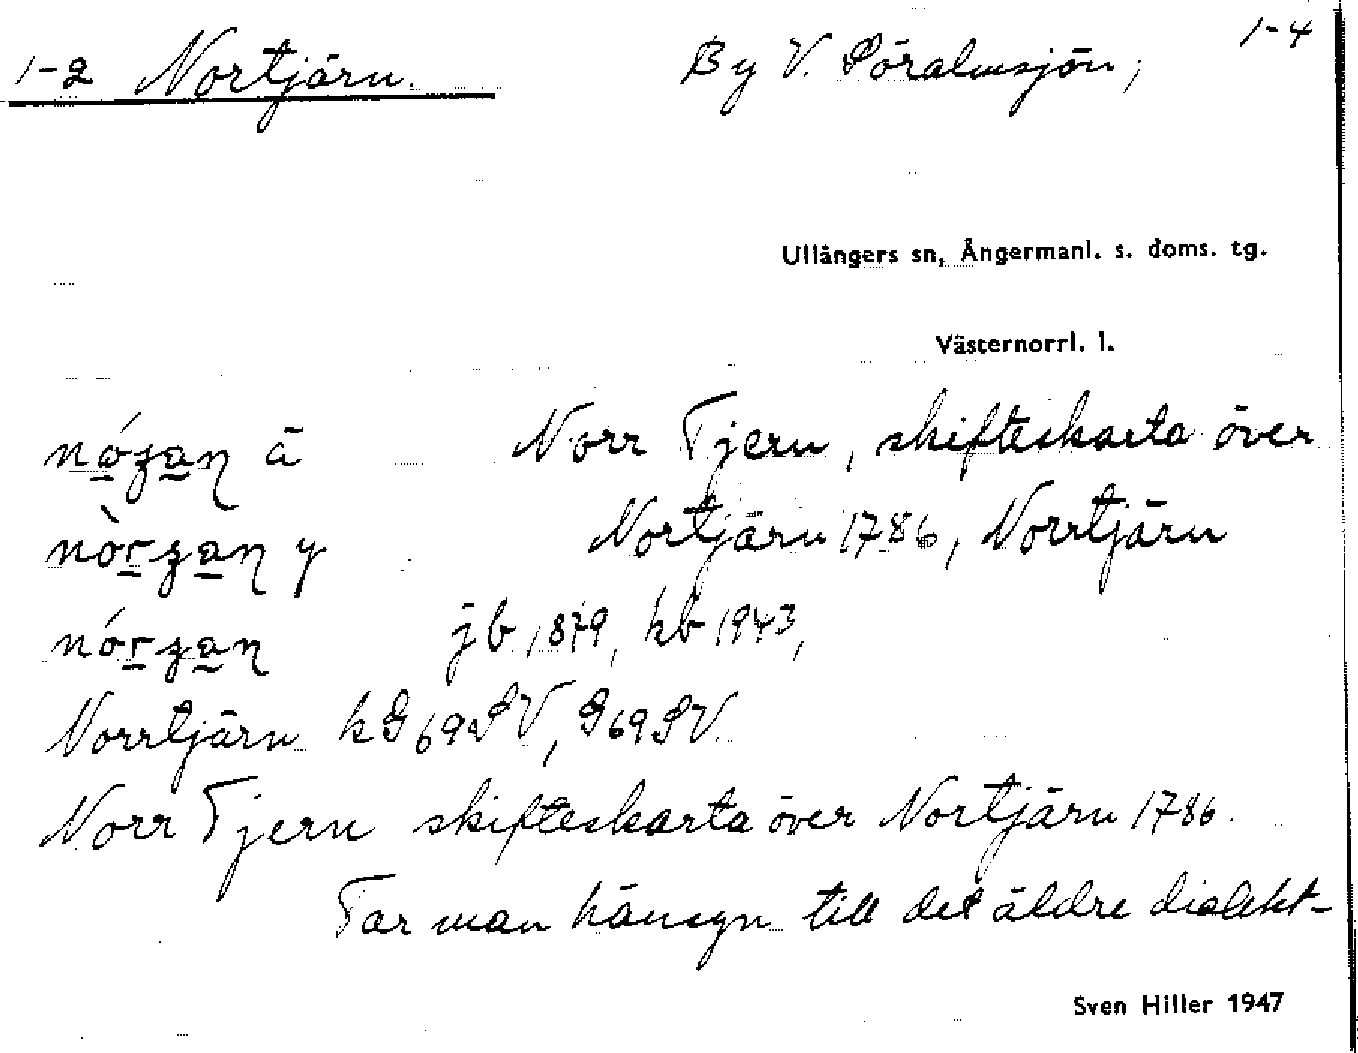 1-2 Nortjärn. By V. Söralmsjön, 1-4
Ullångers sn, Ångermanl. s. doms. tg.
Västernorrl. l.
ä Norr Tjern, skifteskarta över
y Nortjärn 1786, Norrtjärn
jb 1879, kb 1943,
Norrtjärn kG 69SV, G 69SV.
Norr Tjern skifteskarta över Nortjärn 1786.
Tar man hänsyn till det äldre dialekt-
Sven Hiller 1947